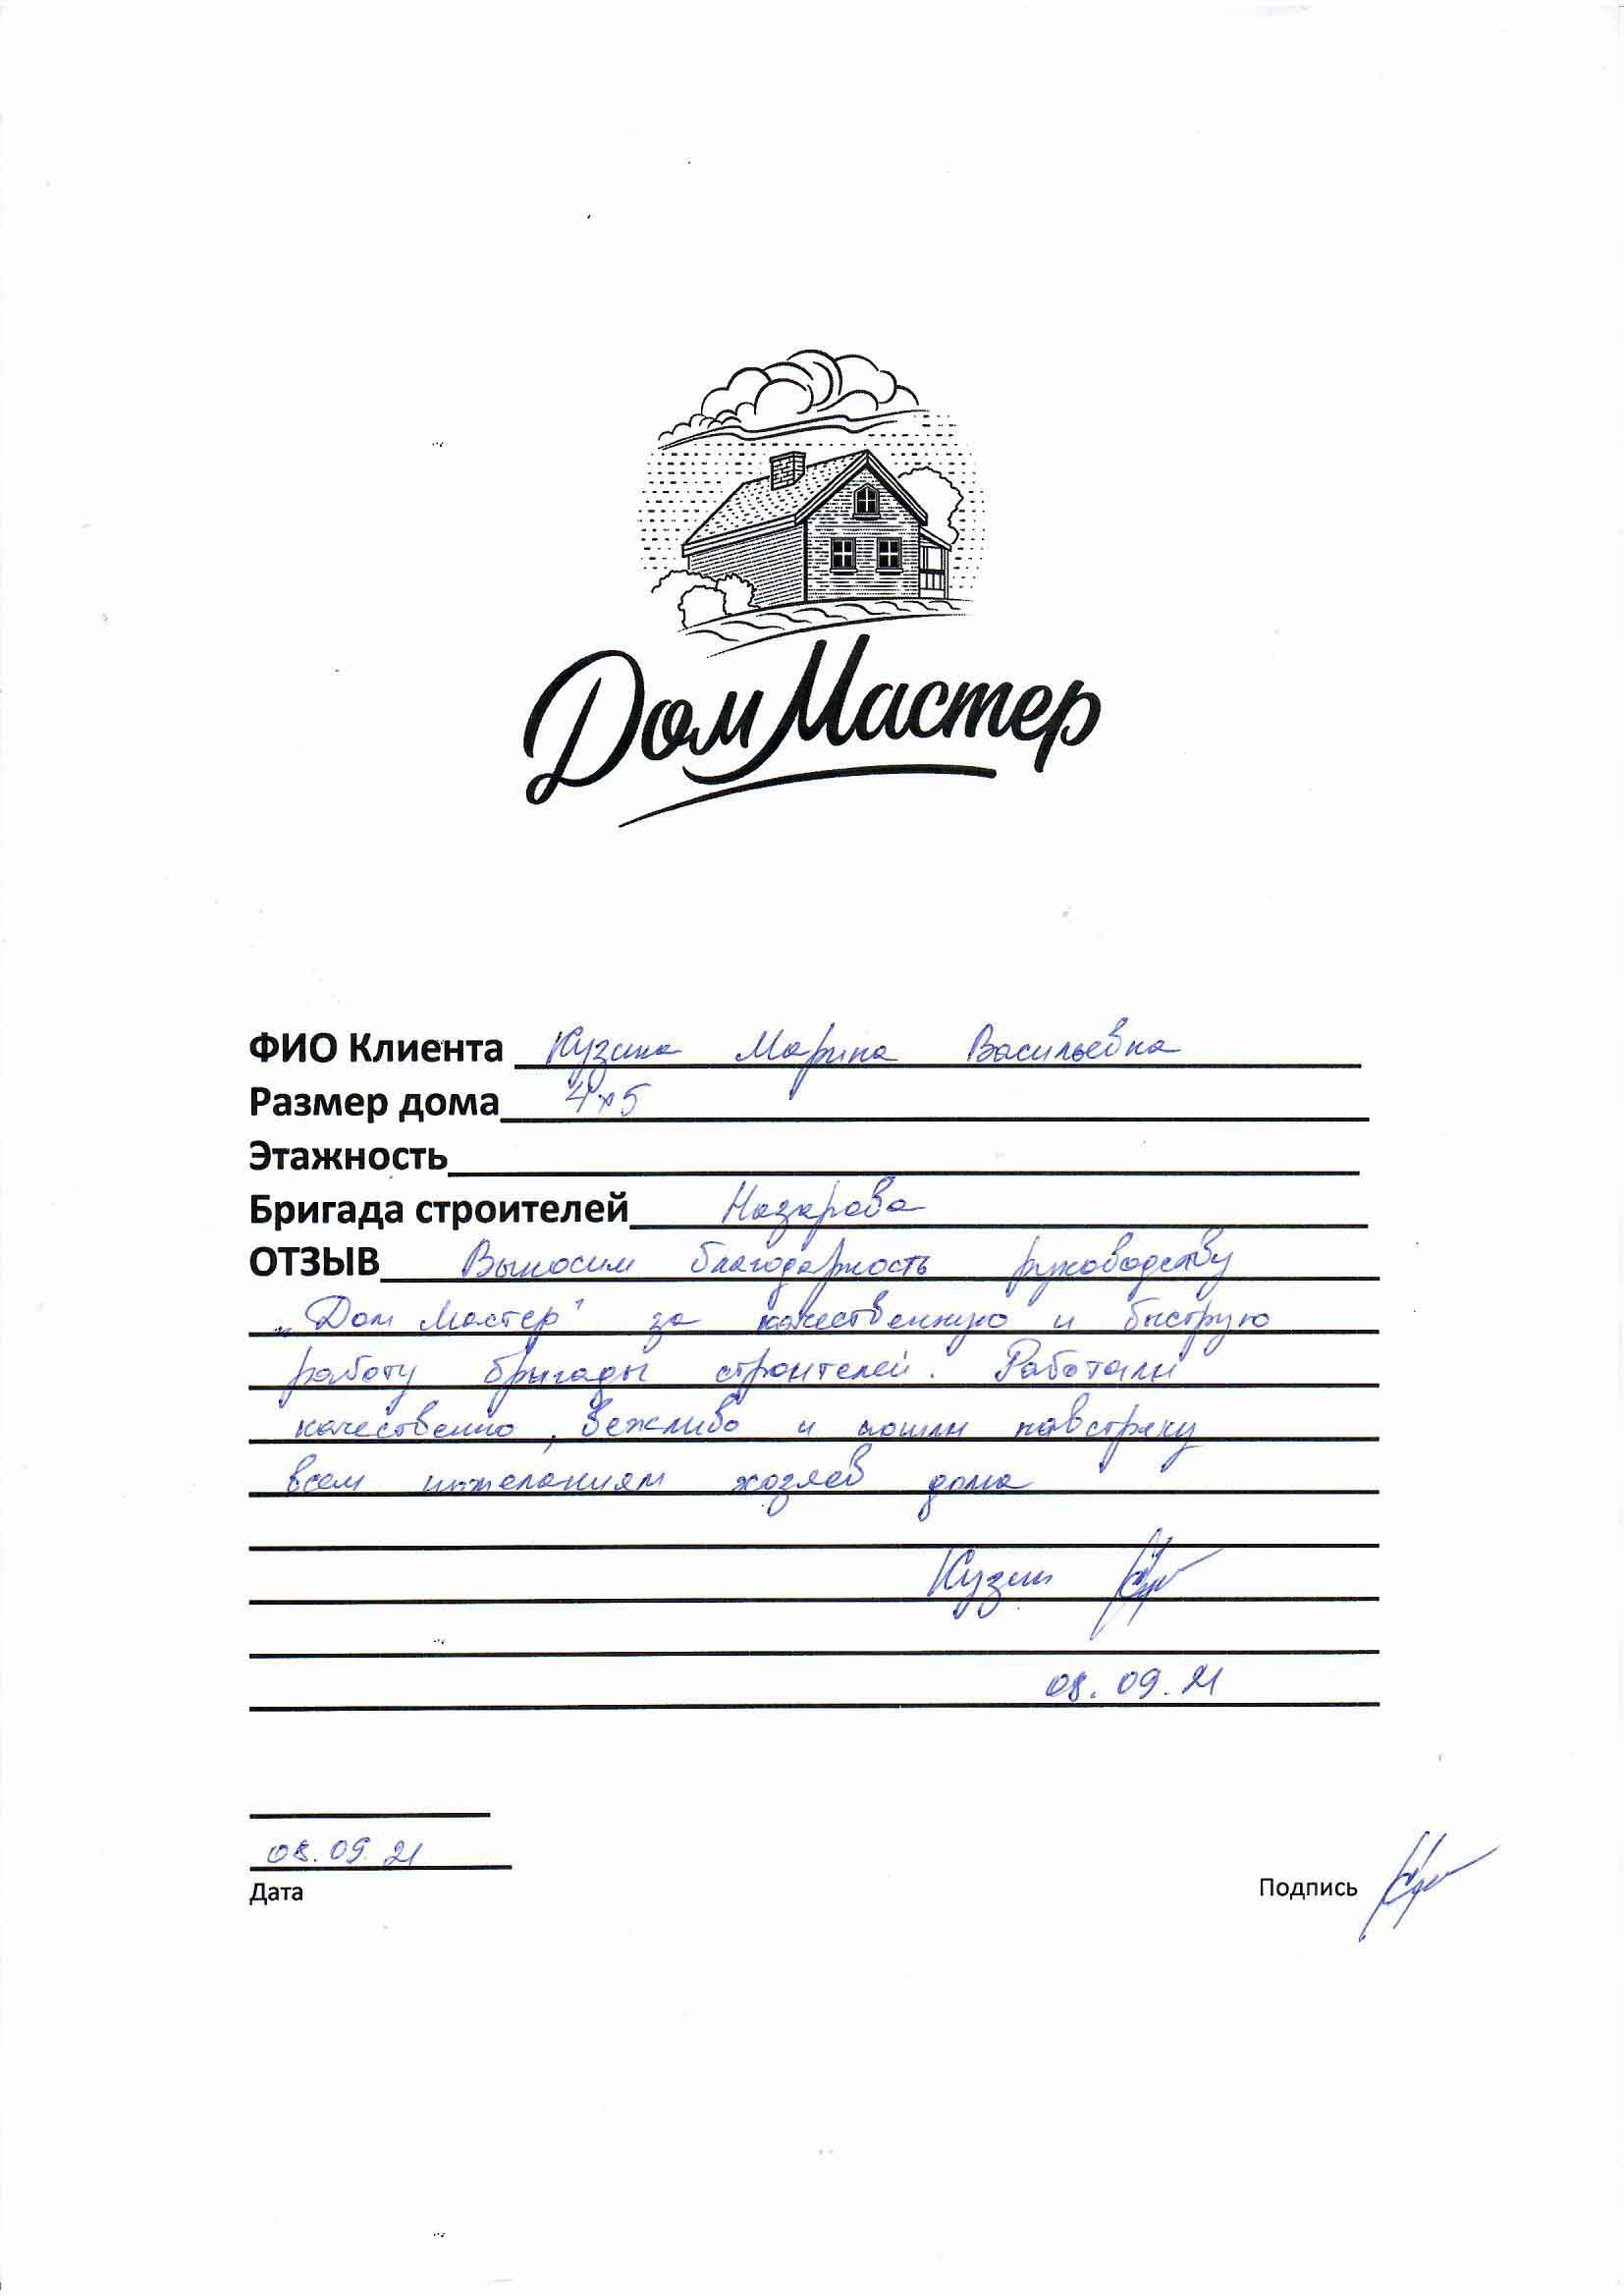 ДомМастер
ФИО Клиента Кузина Марина Васильевна
Размер дома 4х5
Этажность
Бригада строителей Назарова
ОТЗЫВ Выносим благодарность руководству
„Дом Мастер" за качественную и быструю
работу бригады строителей. Работали
качественно, вежливо и пошли навстречу
всем пожеланиям хозяев дома
Кузин
08.09.21
08.09.21
Дата
Подпись